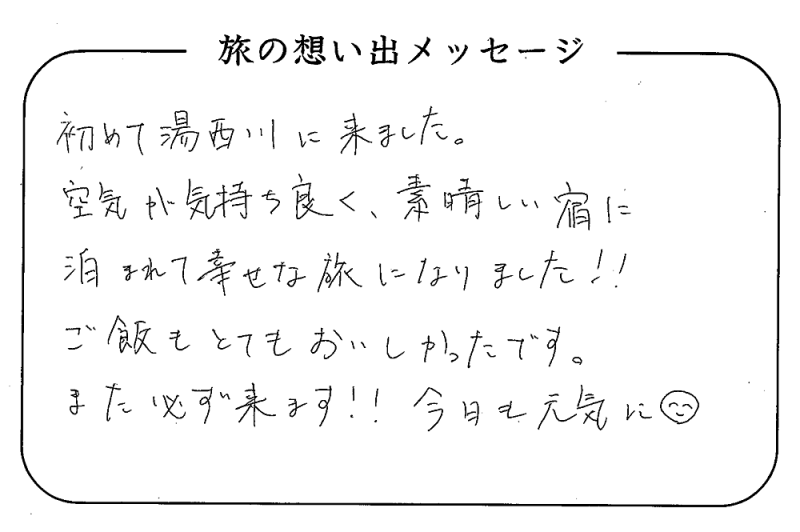 旅の想い出メッセージ
初めて湯西川に来ました。
空気が気持ち良く、素晴しい宿に
泊まれて幸せな旅になりました!!
ご飯もとてもおいしかったです。
また必ず来ます!! 今日も元気に☺